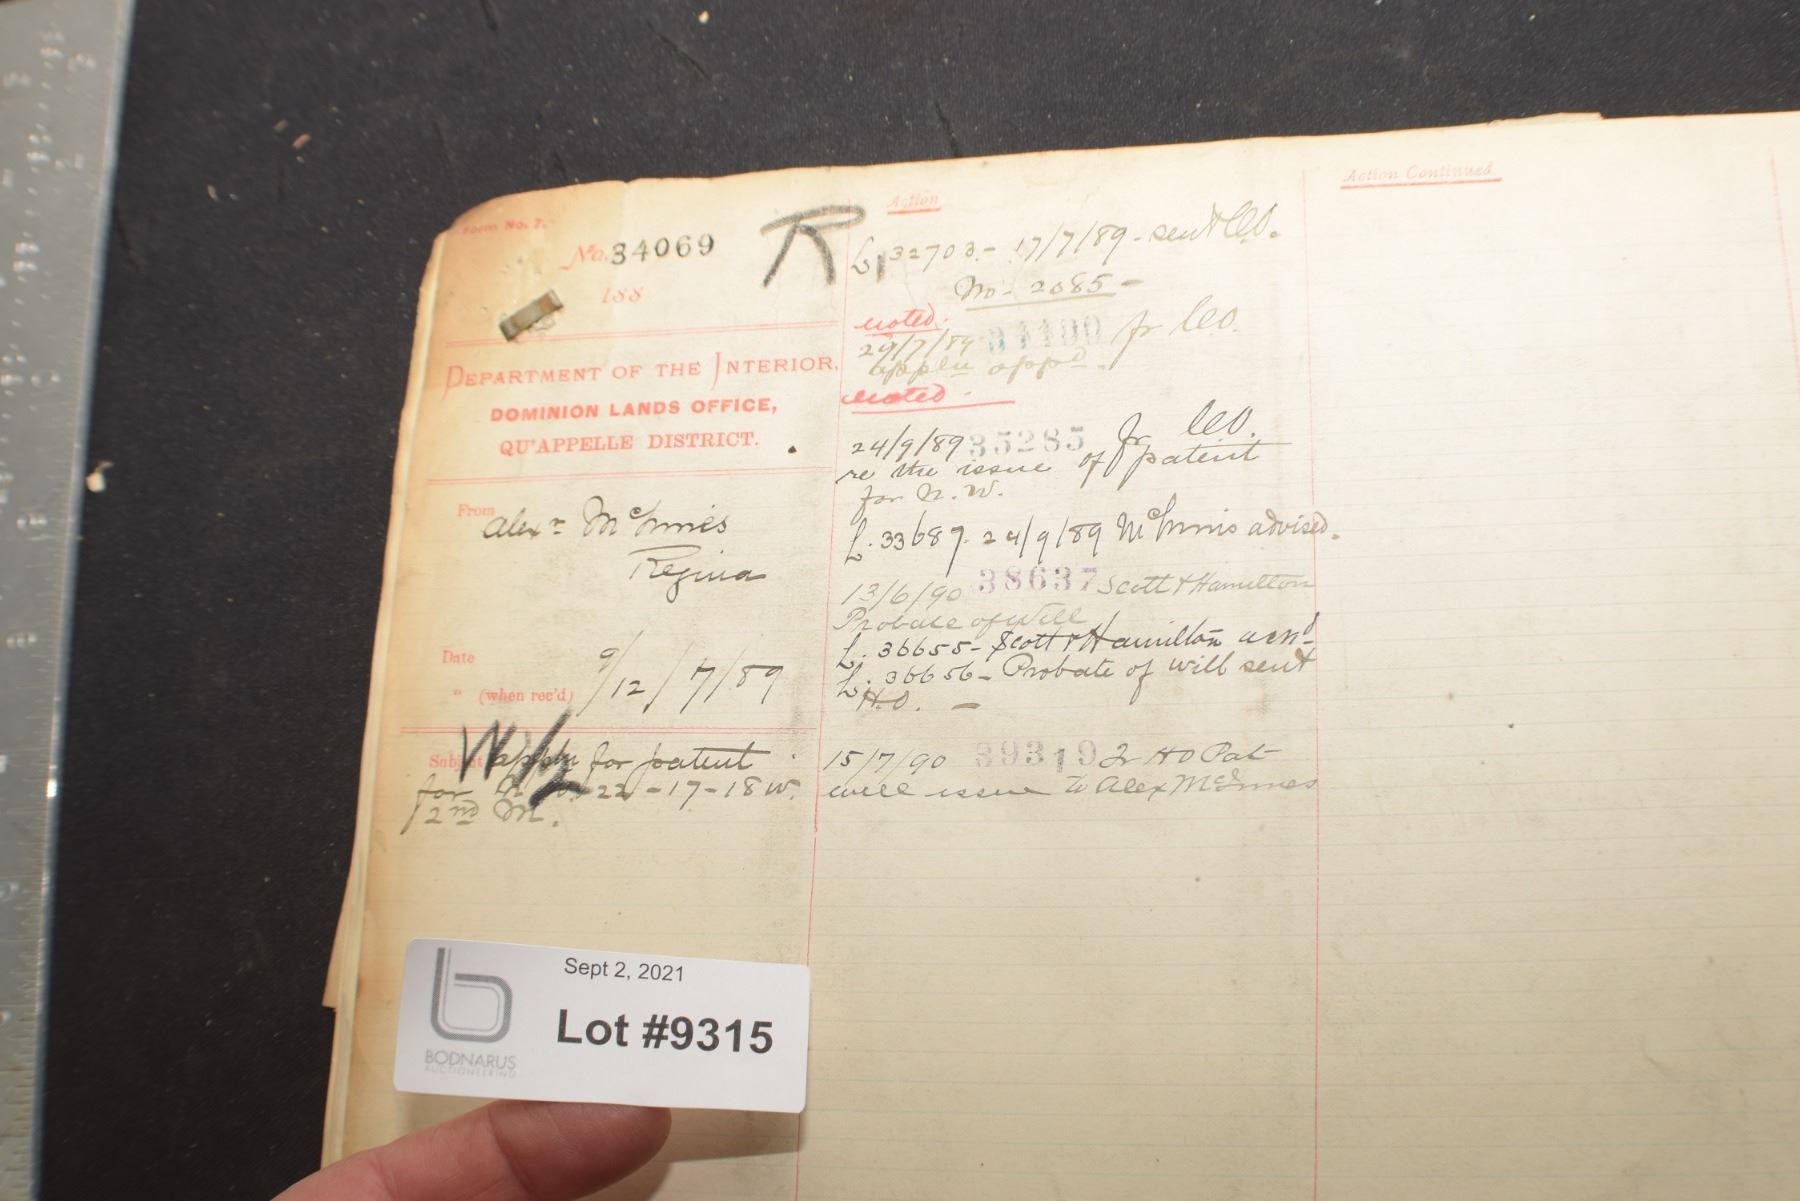 Form No. 7.
No. 34069
188
R
DEPARTMENT OF THE INTERIOR,
DOMINION LANDS OFFICE,
QU'APPELLE DISTRICT.
From Alexr McInnes
Regina
Date
" (when rec'd) 9/12/7/89
Subject appln for patent
for 22-17-18 W.
2nd M.
Action
L 32703 - 17/7/89 - sent
No - 2085 -
noted.
29/7/89 34400 fr
appln appd.
noted -
24/9/89 35285 fr
re the issue of patent
for N.W.
L. 33687. 24/9/89 McInnis advised.
13/6/90 38637 Scott & Hamilton
Probate of Will
L. 36655 - Scott & Hamilton ackd
L. 36656 - Probate of will sent
H.O. -
15/7/90 39319 Fr HO Pat
will issue to Alex McInnes
Action Continued
Sept 2, 2021
Lot #9315
BODNARUS
AUCTIONEERING